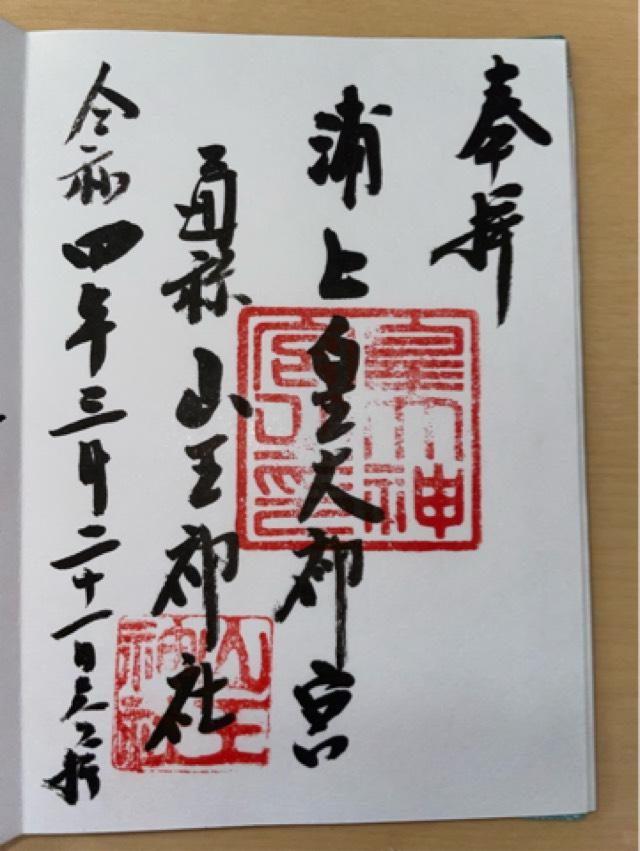 奉拝
浦上皇大神宮
通称山王神社
令和四年三月二十一日
皇大神
山王
神社